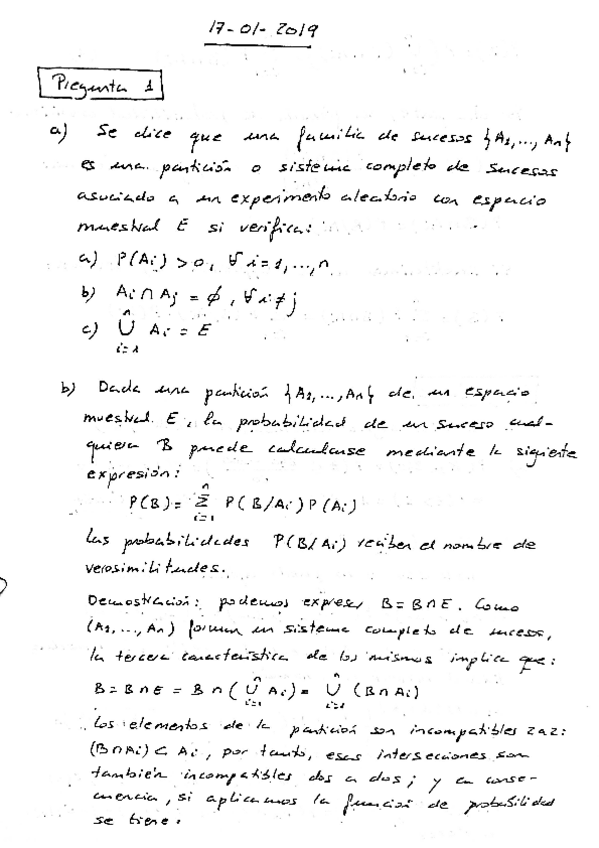 17-01-2019
Pregunta 1
a) Se dice que una familia de sucesos {A1,..., An}
es una partición o sistema completo de sucesos
asociado a un experimento aleatorio con espacio
muestral E si verifica:
a) P(Ai) > 0, ∀ i = 1, ..., n
b) Ai ∩ Aj = ∅, ∀ i ≠ j
c) ⋃ⁿᵢ₌₁ Ai = E
b) Dada una partición {A1, ..., An} de un espacio
muestral E, la probabilidad de un suceso cual-
quiera B puede calcularse mediante la siguiente
expresión:
P(B) = Σⁿᵢ₌₁ P(B/Ai) P(Ai)
Las probabilidades P(B/Ai) reciben el nombre de
verosimilitudes.
Demostración: podemos expresar B = B ∩ E. Como
(A1, ..., An) forman un sistema completo de sucesos,
la tercera característica de los mismos implica que:
B = B ∩ E = B ∩ (⋃ⁿᵢ₌₁ Ai) = ⋃ⁿᵢ₌₁ (B ∩ Ai)
Los elementos de la partición son incompatibles 2 a 2:
(B ∩ Ai) ⊂ Ai, por tanto, esas intersecciones son
también incompatibles dos a dos; y en conse-
cuencia, si aplicamos la función de probabilidad
se tiene: